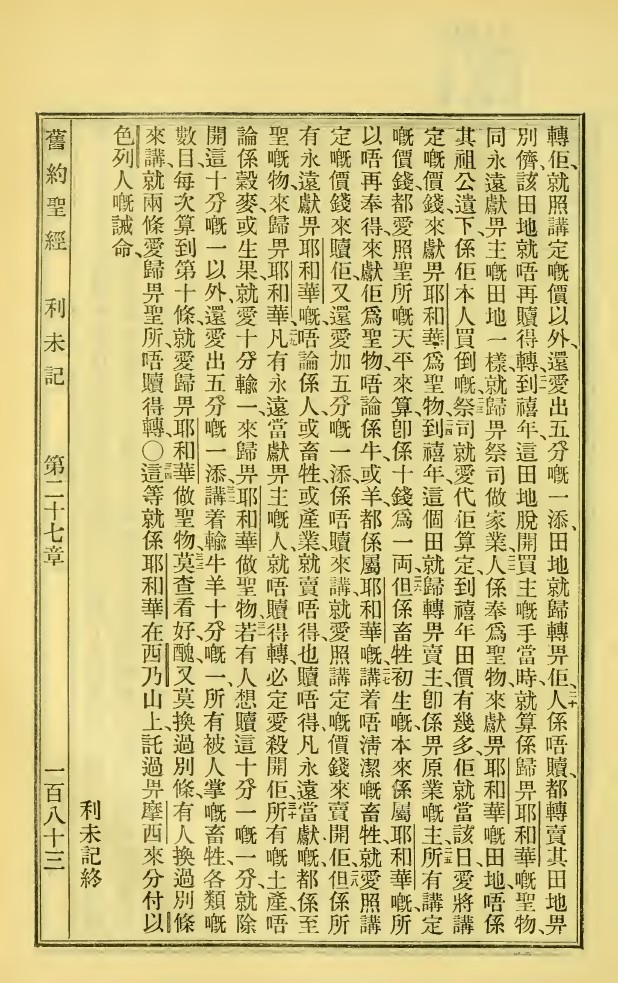 轉佢、就照講定嘅價以外、還愛出五分嘅一添、田地就歸轉畀佢、二十人係唔贖、都轉賣其田地畀
別儕、該田地就唔再贖得轉、二一到禧年這田地脫開買主嘅手當時、就算係歸畀耶和華嘅聖物、
同永遠獻畀主嘅田地一樣、就歸畀祭司做家業、二二人係奉爲聖物來獻畀耶和華嘅田地、唔係
其祖公遺下、係佢本人買倒嘅、二三祭司就愛代佢算定、到禧年田價有幾多、佢就當該日愛將講
定嘅價錢、來獻畀耶和華爲聖物、二四到禧年、這個田就歸轉畀賣主、卽係畀原業嘅主、二五所有講定
嘅價錢、都愛照聖所嘅天平來算、卽係十錢爲一両、二六但係畜牲初生嘅、本來係屬耶和華嘅、所
以唔再奉得來獻佢爲聖物、唔論係牛或羊、都係屬耶和華嘅、二七講着唔淸潔嘅畜牲、就愛照講
定嘅價錢來贖佢、又還愛加五分嘅一添、係唔贖來講、就愛照講定嘅價錢來賣開佢、二八但係所
有永遠獻畀耶和華嘅、唔論係人或畜牲或產業、就賣唔得也贖唔得、凡永遠當獻嘅都係至
聖嘅物、來歸畀耶和華、二九凡有永遠當獻畀主嘅人、就唔贖得轉、必定愛殺開佢、三十所有嘅土產、唔
論係穀麥或生果、就愛十分輸一、來歸畀耶和華做聖物、三一若有人想贖這十分一嘅一分、就除
開這十分嘅一以外、還愛出五分嘅一添、三二講着輸牛羊十分嘅一、所有被人掌嘅畜牲、各類嘅
數目、每次算到第十條、就愛歸畀耶和華做聖物、三三莫查看好醜、又莫換過別條、有人換過別條
來講、就兩條愛歸畀聖所、唔贖得轉、〇三四這等就係耶和華在西乃山上、託過畀摩西來分付以
色列人嘅誡命、
利未記終
舊約聖經 利未記 第二十七章 一百八十三